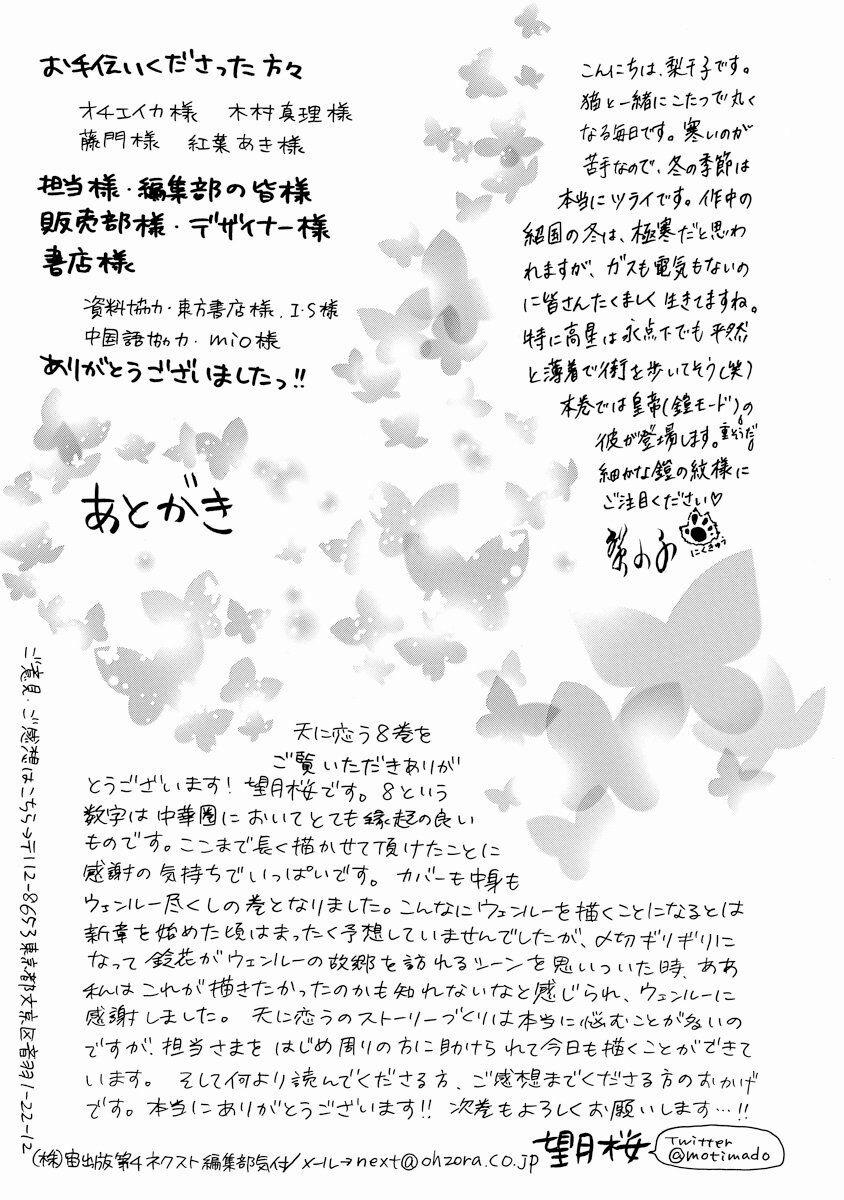 お手伝いくださった方々
オチエイカ様 木村真理様
藤門様 紅葉あき様
担当様・編集部の皆様
販売部様・デザイナー様
書店様
資料協力・東方書店様、I・S様
中国語協力・mio様
ありがとうございましたっ!!
こんにちは、梨千子です。
猫と一緒にこたつで丸く
なる毎日です。寒いのが
苦手なので、冬の季節は
本当にツライです。作中の
紹国の冬は、極寒だと思わ
れますが、ガスも電気もないの
に皆さんたくましく生きてますね。
特に高星は氷点下でも平然
と薄着で街を歩いてそう(笑)
本巻では皇帝(鎧モード)の
彼が登場します。重そうだ
細かな鎧の紋様に
ご注目ください♡
にくきゅう
あとがき
天に恋う8巻を
ご覧いただきありが
とうございます!望月桜です。8という
数字は中華圏においてとても縁起の良い
ものです。ここまで長く描かせて頂けたことに
感謝の気持ちでいっぱいです。カバーも中身も
ウェンルー尽くしの巻となりました。こんなにウェンルーを描くことになるとは
新章を始めた頃はまったく予想していませんでしたが、〆切ギリギリに
なって鈴花がウェンルーの故郷を訪れるシーンを思いついた時、ああ
私はこれが描きたかったのかも知れないなと感じられ、ウェンルーに
感謝しました。天に恋うのストーリーづくりは本当に悩むことが多いの
ですが、担当さまをはじめ周りの方に助けられて今日も描くことができて
います。そして何より読んでくださる方、ご感想までくださる方のおかげ
です。本当にありがとうございます!!次巻もよろしくお願いします…!!
望月桜
Twitter
@motimado
ご意見・ご感想はこちら→〒112-8653東京都文京区音羽1-22-12
(株)宙出版第4ネクスト編集部気付/メール→next@ohzora.co.jp